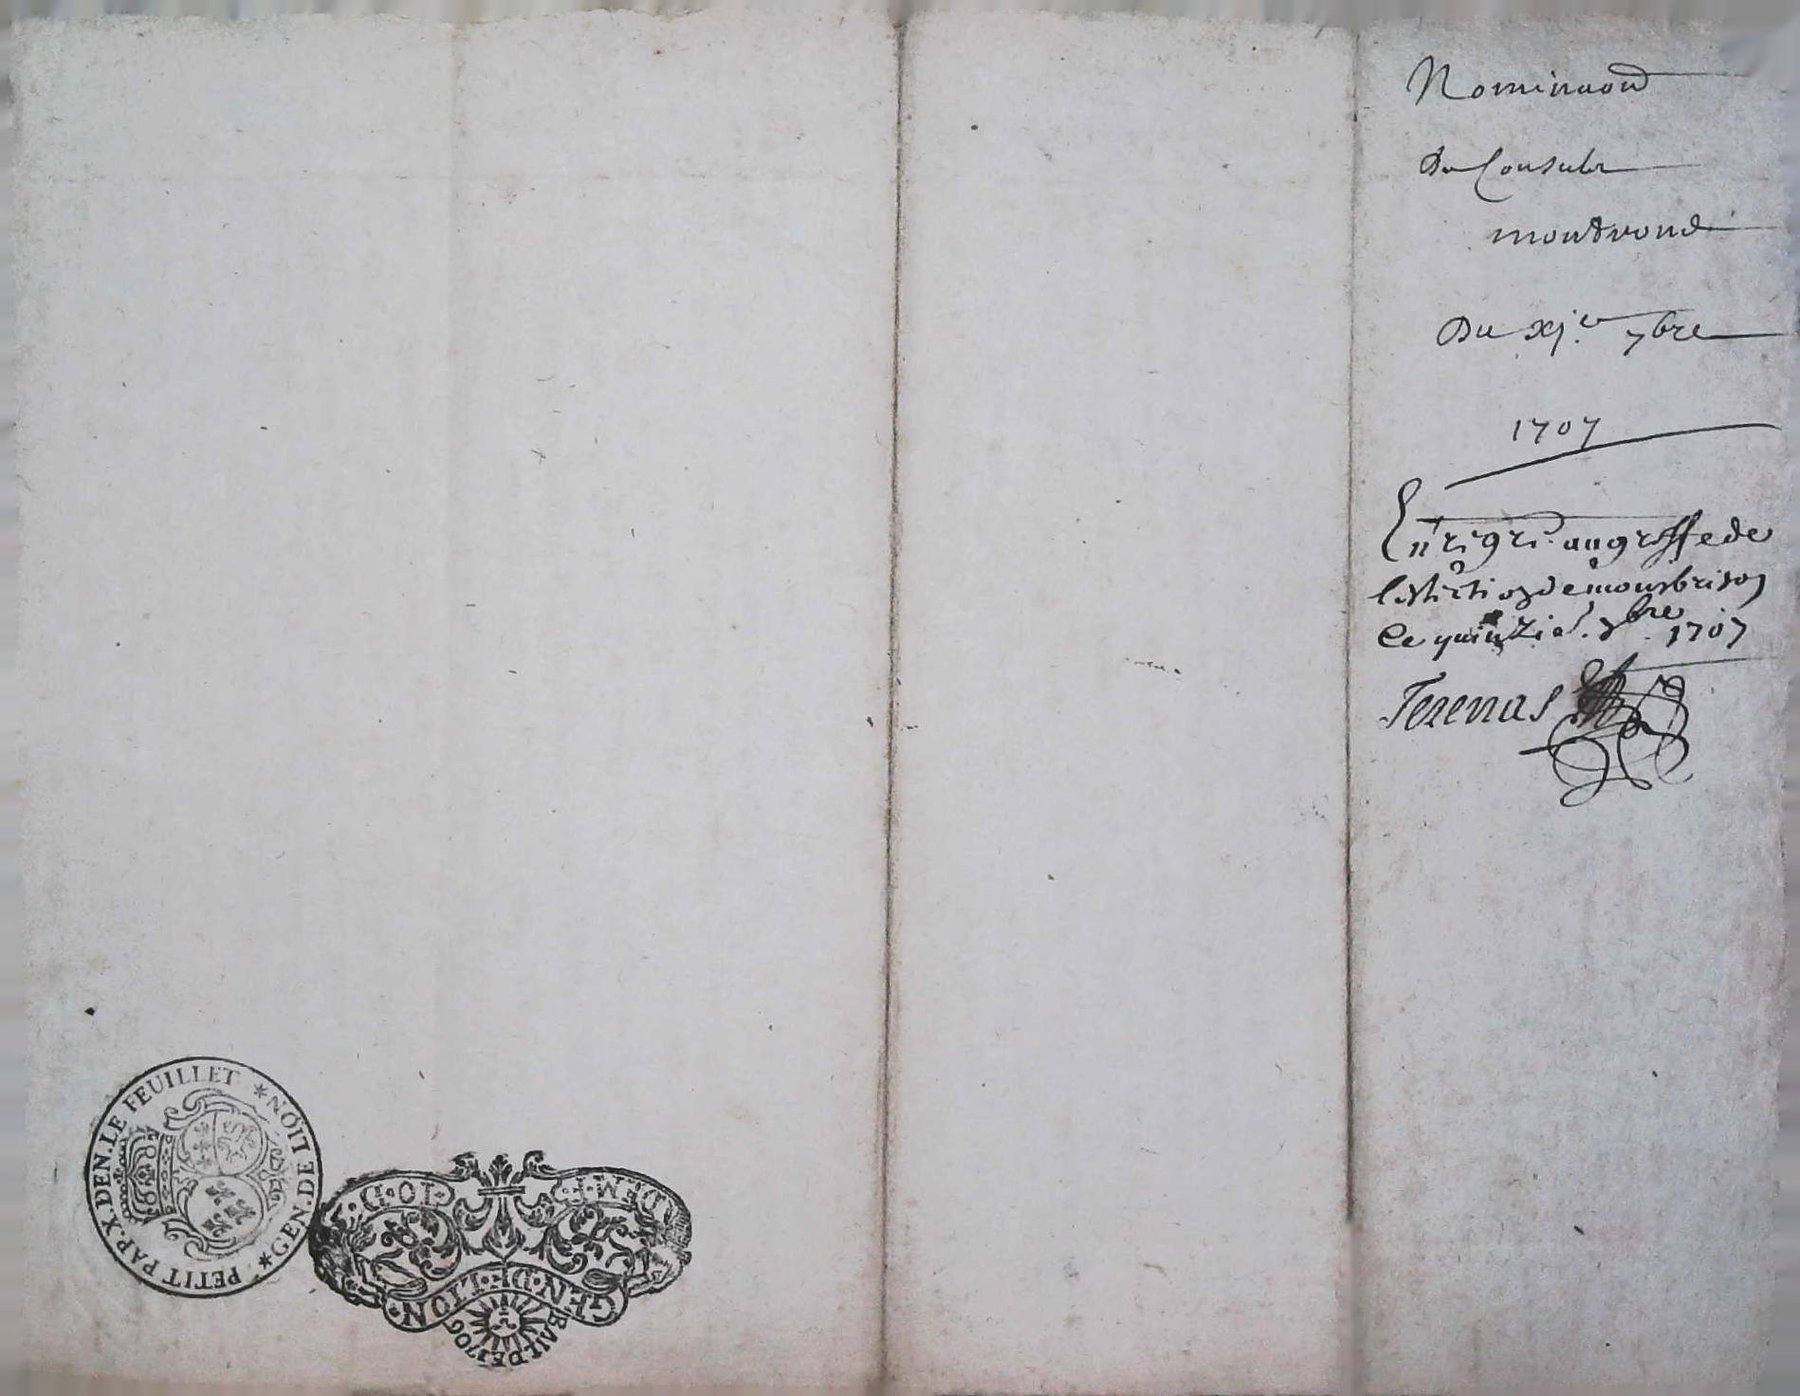 Nominaon
De Consule
montrond
Du xj.e 7bre
1707
Enregré. au greffe de
lestection de monbrison
Ce quinzie. 7bre 1707
Terenas
PETIT PAP. X DEN. LE FEUILLET * NOIT DE GEN. DE *
10·D· DEM·F·
GEN·DE·LION·
BAIL·DE·1706